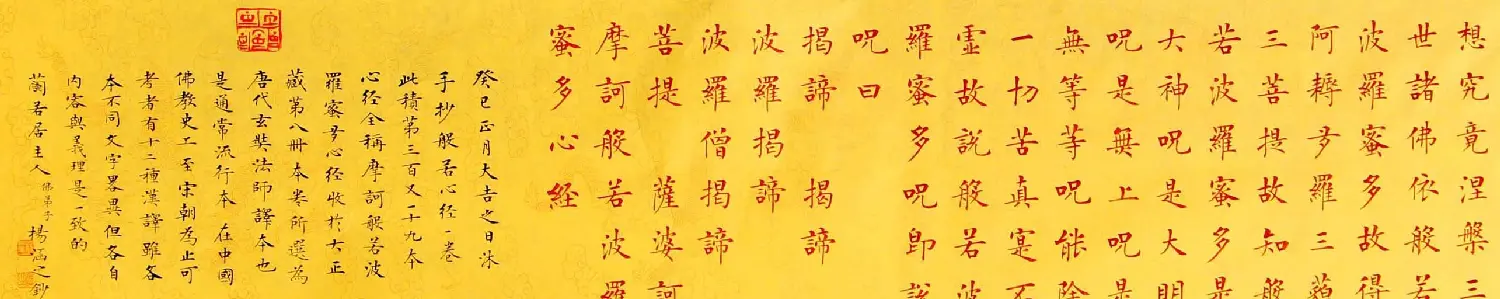 想究竟涅槃三
世諸佛依般若
波羅蜜多故得
阿耨多羅三藐
三菩提故知般
若波羅蜜多是
大神呪是大明
呪是無上呪是
無等等呪能除
一切苦真寔不
虛故說般若波
羅蜜多呪即說
呪曰
揭諦 揭諦
波羅揭諦
波羅僧揭諦
菩提 薩婆訶
摩訶般若波羅
蜜多心経
癸巳正月大吉之日沐
手抄般若心経一卷
此積第三百又二十九本
心経全稱摩訶般若波
羅蜜多心経收於大正
藏第八冊本卷所選為
唐代玄奘法師譯本也
是通常流行本 在中國
佛教史上至宋朝為止可
考者有十二種漢譯雖各
本不同文字畧異但各自
內容與義理是一致的
蘭若居主人 佛弟子 楊涵之鈔